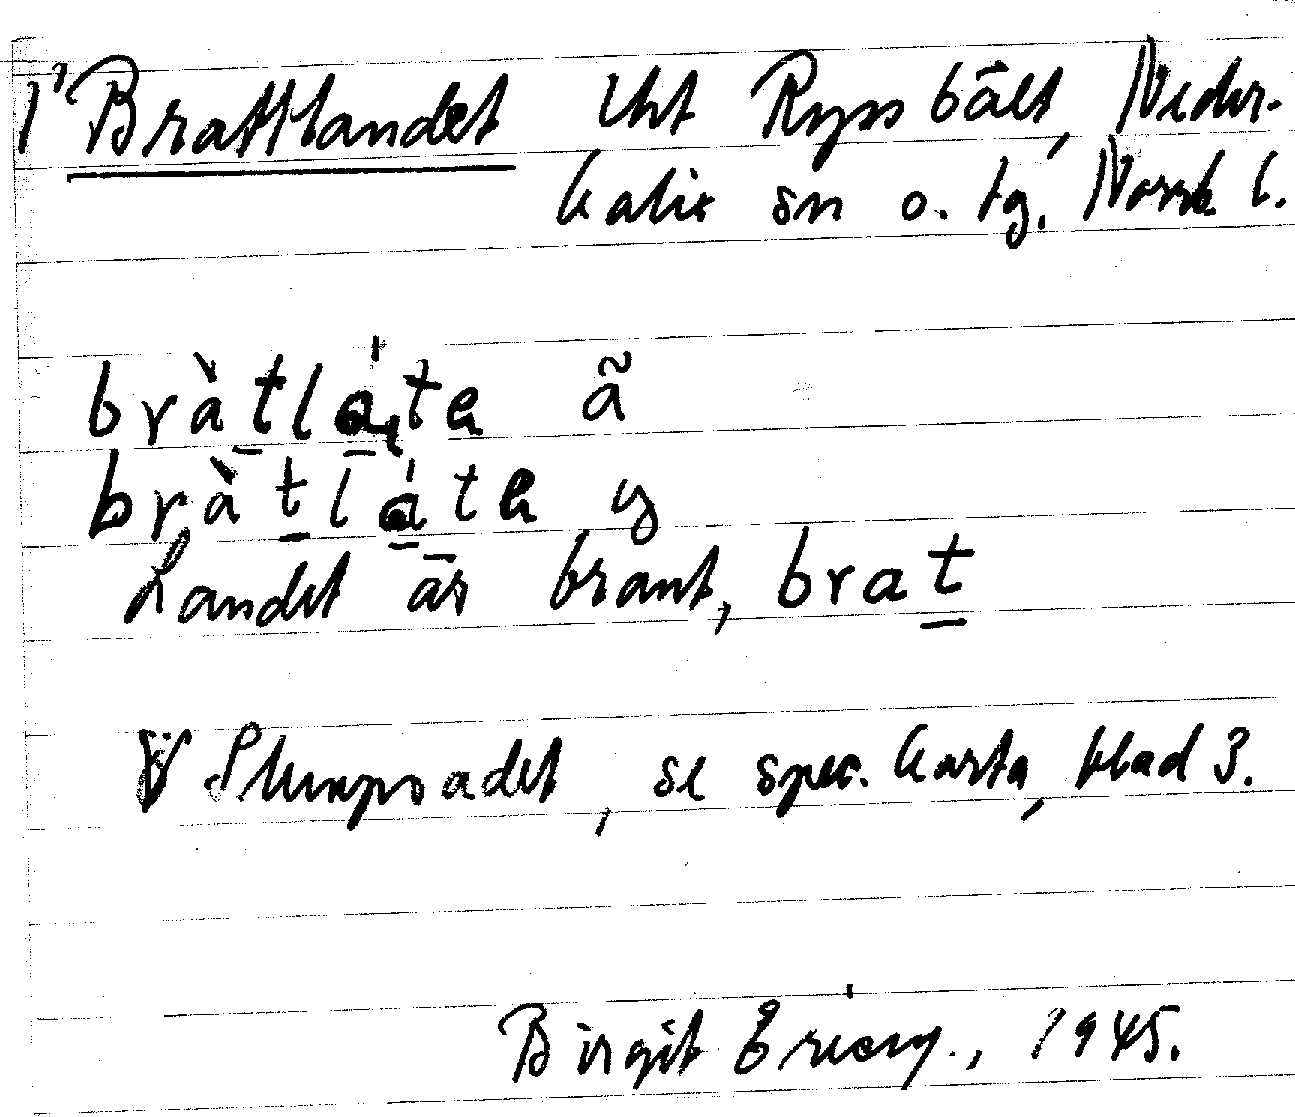 1) Brattlandet Uht Ryssbält, Neder-
kalix sn o. tg. Norrb. l.
bràtláte ã
bràtláte y
Landet är brant, brat
V Skupsadet, se spec. karta, blad 3.
Birgit Ericy., 1945.